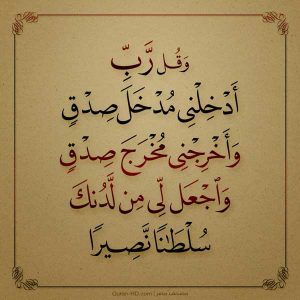 وَقُل رَّبِّ
أَدْخِلْنِى مُدْخَلَ صِدْقٍ
وَأَخْرِجْنِى مُخْرَجَ صِدْقٍ
وَٱجْعَل لِّى مِن لَّدُنكَ
سُلْطَـٰنًا نَّصِيرًا
Quran-HD.com |